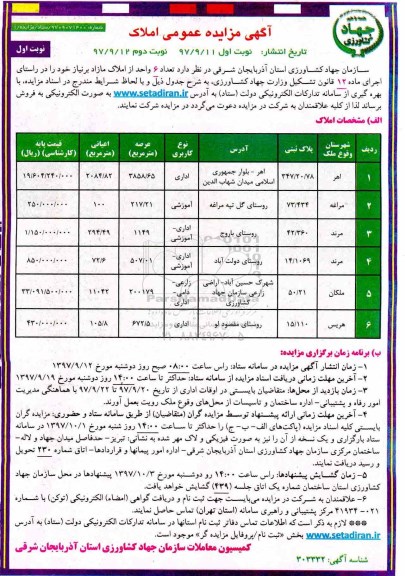 شماره: ۹۷۰۹۰۷۱۴۰۰
نوبت اول
جهاد کشاورزی
آگهی مزایده عمومی املاک
تاریخ انتشار: نوبت اول ۹۷/۹/۱۱ نوبت دوم ۹۷/۹/۱۲
سازمان جهاد کشاورزی استان آذربایجان شرقی در نظر دارد تعداد ۶ واحد از املاک مازاد برنیاز خود را در راستای
اجرای ماده ۱۲ قانون تشکیل وزارت جهاد کشاورزی، به شرح جدول ذیل و با لحاظ شرایط مندرج در اسناد مزایده، با
بهره گیری از سامانه تدارکات الکترونیکی دولت (ستاد) به آدرس www.setadiran.ir به صورت الکترونیکی به فروش
برساند لذا از کلیه علاقمندان به شرکت در مزایده دعوت می‌گردد در مزایده شرکت نمایند.
الف) مشخصات املاک
ردیف شهرستان وقوع ملک پلاک ثبتی آدرس نوع کاربری عرصه (مترمربع) اعیانی (مترمربع) قیمت پایه (کارشناسی) (ریال)
۱ اهر ۳۴۷/۲۰/۷۸ اهر - بلوار جمهوری اسلامی میدان شهاب الدین اداری ۳۸۵۸/۶۵ ۲۰۸۴/۸۲ ۱۹/۶۰۴/۲۴۰/۰۰۰
۲ مراغه ۷۳/۴۳۴ روستای گل تپه مراغه آموزشی ۲۱۷/۲۱ ۱۰۰ ۲۵۰/۰۰۰/۰۰۰
۳ مرند ۴۲/۳۶۰ روستای باروج اداری- آموزشی ۱۱۴۹ ۲۹۴/۴۹ ۱/۱۵۰/۰۰۰/۰۰۰
۴ مرند ۱۴/۱۰۶۹ روستای دولت آباد اداری- آموزشی ۵۰۷/۰۱ ۷۲/۶ ۸۵۰/۰۰۰/۰۰۰
۵ ملکان ۵۰/۲۱ شهرک حسین آباد- اراضی زراعی سازمان جهاد کشاورزی زراعی- دامی- اداری ۲۰۰۱۷۹ ۱۱۰۴۲ ۳۳/۰۹۱/۵۰۰/۰۰۰
۶ هریس ۱۵/۱۱۰ روستای مقصود لو اداری ۶۷۲/۵ ۱۰۵/۸ ۴۳۰/۰۰۰/۰۰۰
ب) برنامه زمان برگزاری مزایده:
۱- زمان انتشار آگهی مزایده در سامانه ستاد: راس ساعت ۰۸:۰۰ صبح روز دوشنبه مورخ ۱۳۹۷/۹/۱۲
۲- آخرین مهلت زمانی دریافت اسناد مزایده از سامانه ستاد: حداکثر تا ساعت ۱۴:۰۰ روز دوشنبه مورخ ۱۳۹۷/۹/۱۹
۳- زمان بازدید از محل‌ها: متقاضیان بایستی در اوقات اداری از تاریخ ۹۷/۹/۲۰ تا ۹۷/۹/۲۲ با هماهنگی مدیریت
امور رفاه و پشتیبانی- اداره ساختمان و تاسیسات از محل‌های وقوع ملک رویت بعمل آورند.
۴- آخرین مهلت زمانی ارائه پیشنهاد توسط مزایده گران (متقاضیان) از طریق سامانه ستاد و حضوری: مزایده گران
بایستی کلیه اسناد مزایده (پاکت‌های الف- ب- ج) را حداکثر تا ساعت ۱۴:۰۰ روز شنبه مورخ ۱۳۹۷/۱۰/۱ در سامانه
ستاد بارگزاری و یک نسخه از آن را نیز به صورت فیزیکی و لاک مهر شده به نشانی: تبریز- حدفاصل میدان جهاد و لاله-
ساختمان مرکزی سازمان جهاد کشاورزی استان آذربایجان شرقی- اداره امور پیمانها و قراردادها- اتاق شماره ۲۳۰ تحویل
و رسید دریافت نمایند.
۵- زمان گشایش پیشنهادها: راس ساعت ۱۴:۰۰ رو دوشنبه مورخ ۱۳۹۷/۱۰/۳ پیشنهادها در محل سازمان جهاد
کشاورزی استان ساختمان شماره یک اتاق جلسه (۴۳۹) گشایش خواهد یافت.
۶- علاقمندان به شرکت در مزایده می‌بایست جهت ثبت نام و دریافت گواهی (امضاء) الکترونیکی (توکن) با شماره
۰۲۱-۴۱۹۳۴ مرکز پشتیبانی و راهبری سامانه (استان تهران) تماس حاصل نمایند.
*** لازم به ذکر است که اطلاعات تماس دفاتر ثبت نام استانها در سامانه تدارکات الکترونیکی دولت (ستاد) به آدرس
www.setadiran.ir بخش «ثبت نام/پروفایل مزایده گر» موجود است.
کمیسیون معاملات سازمان جهاد کشاورزی استان آذربایجان شرقی
شناسه آگهی: ۳۰۳۳۳۲